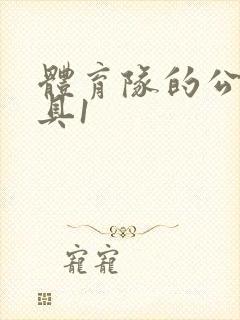 體育隊的公
具1
寵寵